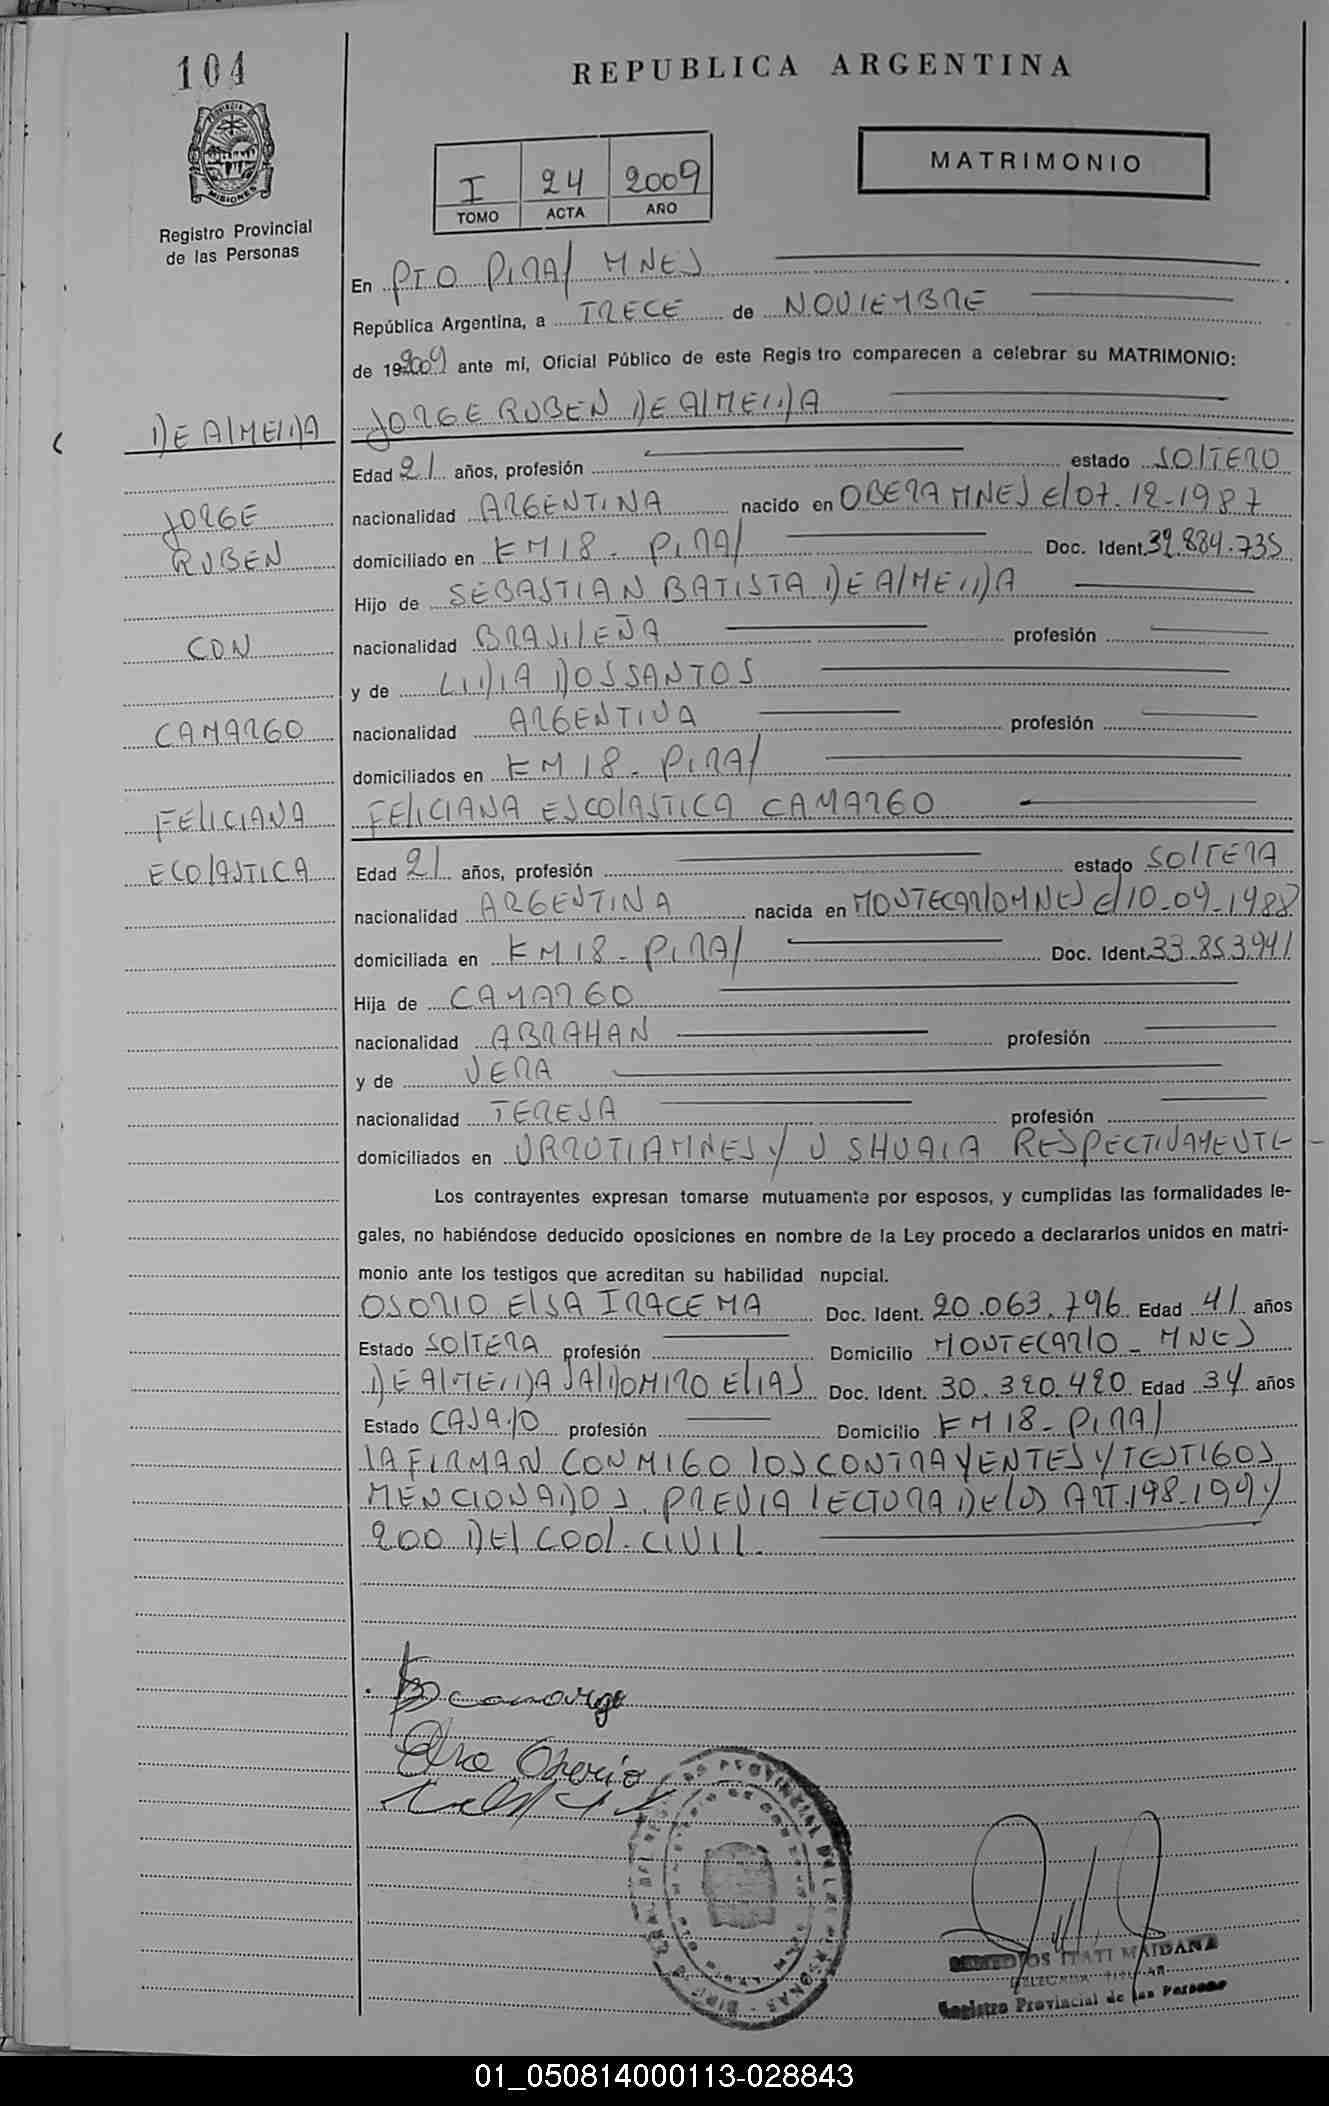 104
REPUBLICA ARGENTINA
PROVINCIA DE
MISIONES
MATRIMONIO
I 24 2009
TOMO ACTA AÑO
Registro Provincial
de las Personas
En PTO PIRAY MNES
República Argentina, a TRECE de NOVIEMBRE
de 192009 ante mí, Oficial Público de este Regis tro comparecen a celebrar su MATRIMONIO:
DE ALMEIDA
JORGE RUBEN DE ALMEIDA
Edad 21 años, profesión estado SOLTERO
JORGE
nacionalidad ARGENTINA nacido en OBERA MNES El 07.12-1987
RUBEN
domiciliado en KM 18 - PIRAY Doc. Ident. 32.884.735
Hijo de SEBASTIAN BATISTA DE ALMEIDA
CON
nacionalidad BRASILEÑA profesión
y de LIDIA DOS SANTOS
CAMARGO
nacionalidad ARGENTINA profesión
domiciliados en KM 18 - PIRAY
FELICIANA
FELICIANA ESCOLASTICA CAMARGO
ECOLASTICA
Edad 21 años, profesión estado SOLTERA
nacionalidad ARGENTINA nacida en MONTECARLO MNES El 10-09-1988
domiciliada en KM 18 - PIRAY Doc. Ident. 33.853.941
Hija de CAMARGO
nacionalidad ABRAHAN profesión
y de VERA
nacionalidad TERESA profesión
domiciliados en URROTIA MNES Y USHUAIA RESPECTIVAMENTE -
Los contrayentes expresan tomarse mutuamente por esposos, y cumplidas las formalidades le-
gales, no habiéndose deducido oposiciones en nombre de la Ley procedo a declararlos unidos en matri-
monio ante los testigos que acreditan su habilidad nupcial.
OSORIO ELSA IRACEMA Doc. Ident. 20.063.796 Edad 41 años
Estado SOLTERA profesión Domicilio MONTECARLO - MNES
DE ALMEIDA VALDOMIRO ELIAS Doc. Ident. 30.320.420 Edad 34 años
Estado CASADO profesión Domicilio KM 18 - PIRAY
LA FIRMAN CONMIGO LOS CONTRAYENTES Y TESTIGOS
MENCIONADOS. PREVIA LECTURA DE LOS ART. 198-199 Y
200 DEL COOL. CIVIL.
Camargo
Osorio
ITATI MAIDANA
DELEGADA TITULAR
Registro Provincial de las Personas
01_050814000113-028843